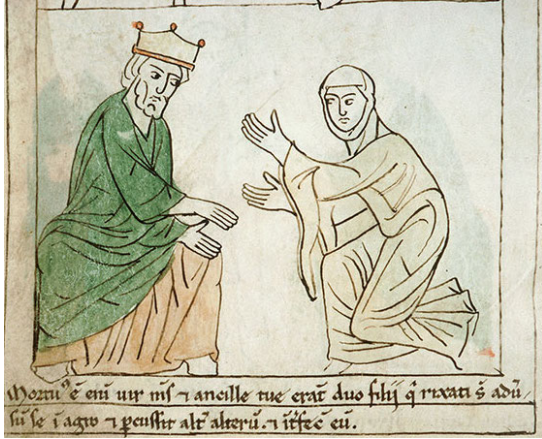 Mortu⁹ ē eni uir mı̄s ⁊ ancille tue erāt duo filij q̄ rixati s̄ adū,
sū se ī agro ⁊ ꝑcussit alt̄ alterū. ⁊ īt̄fec̄ eū.